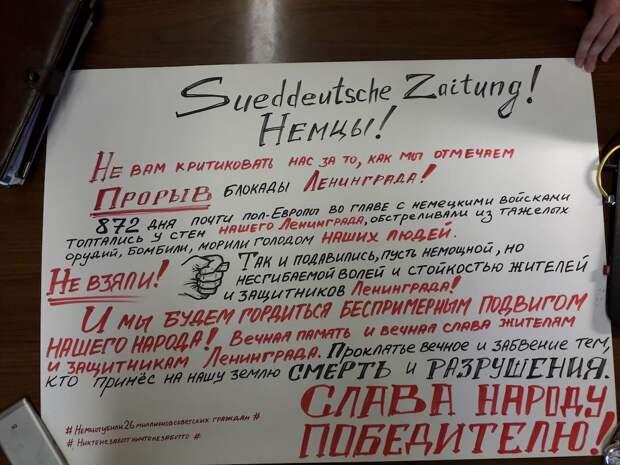 Sueddeutsche Zaitung!
Немцы!
Не вам критиковать нас за то, как мы отмечаем
Прорыв блокады Ленинграда!
872 дня почти пол-Европы во главе с немецкими войсками
топтались у стен нашего Ленинграда, обстреливали из тяжелых
орудий, бомбили, морили голодом наших людей.
Не взяли!
Так и подавились, пусть немощной, но
несгибаемой волей и стойкостью жителей
и защитников Ленинграда!
И мы будем гордиться беспримерным подвигом
нашего народа! Вечная память и вечная слава жителям
и защитникам Ленинграда. Проклатье вечное и забвение тем,
кто принёс на нашу землю смерть и разрушения.
Слава народу
победителю!
#Немцыубили26миллионовсоветских граждан#
#Никтонезабытничтонезабыто#